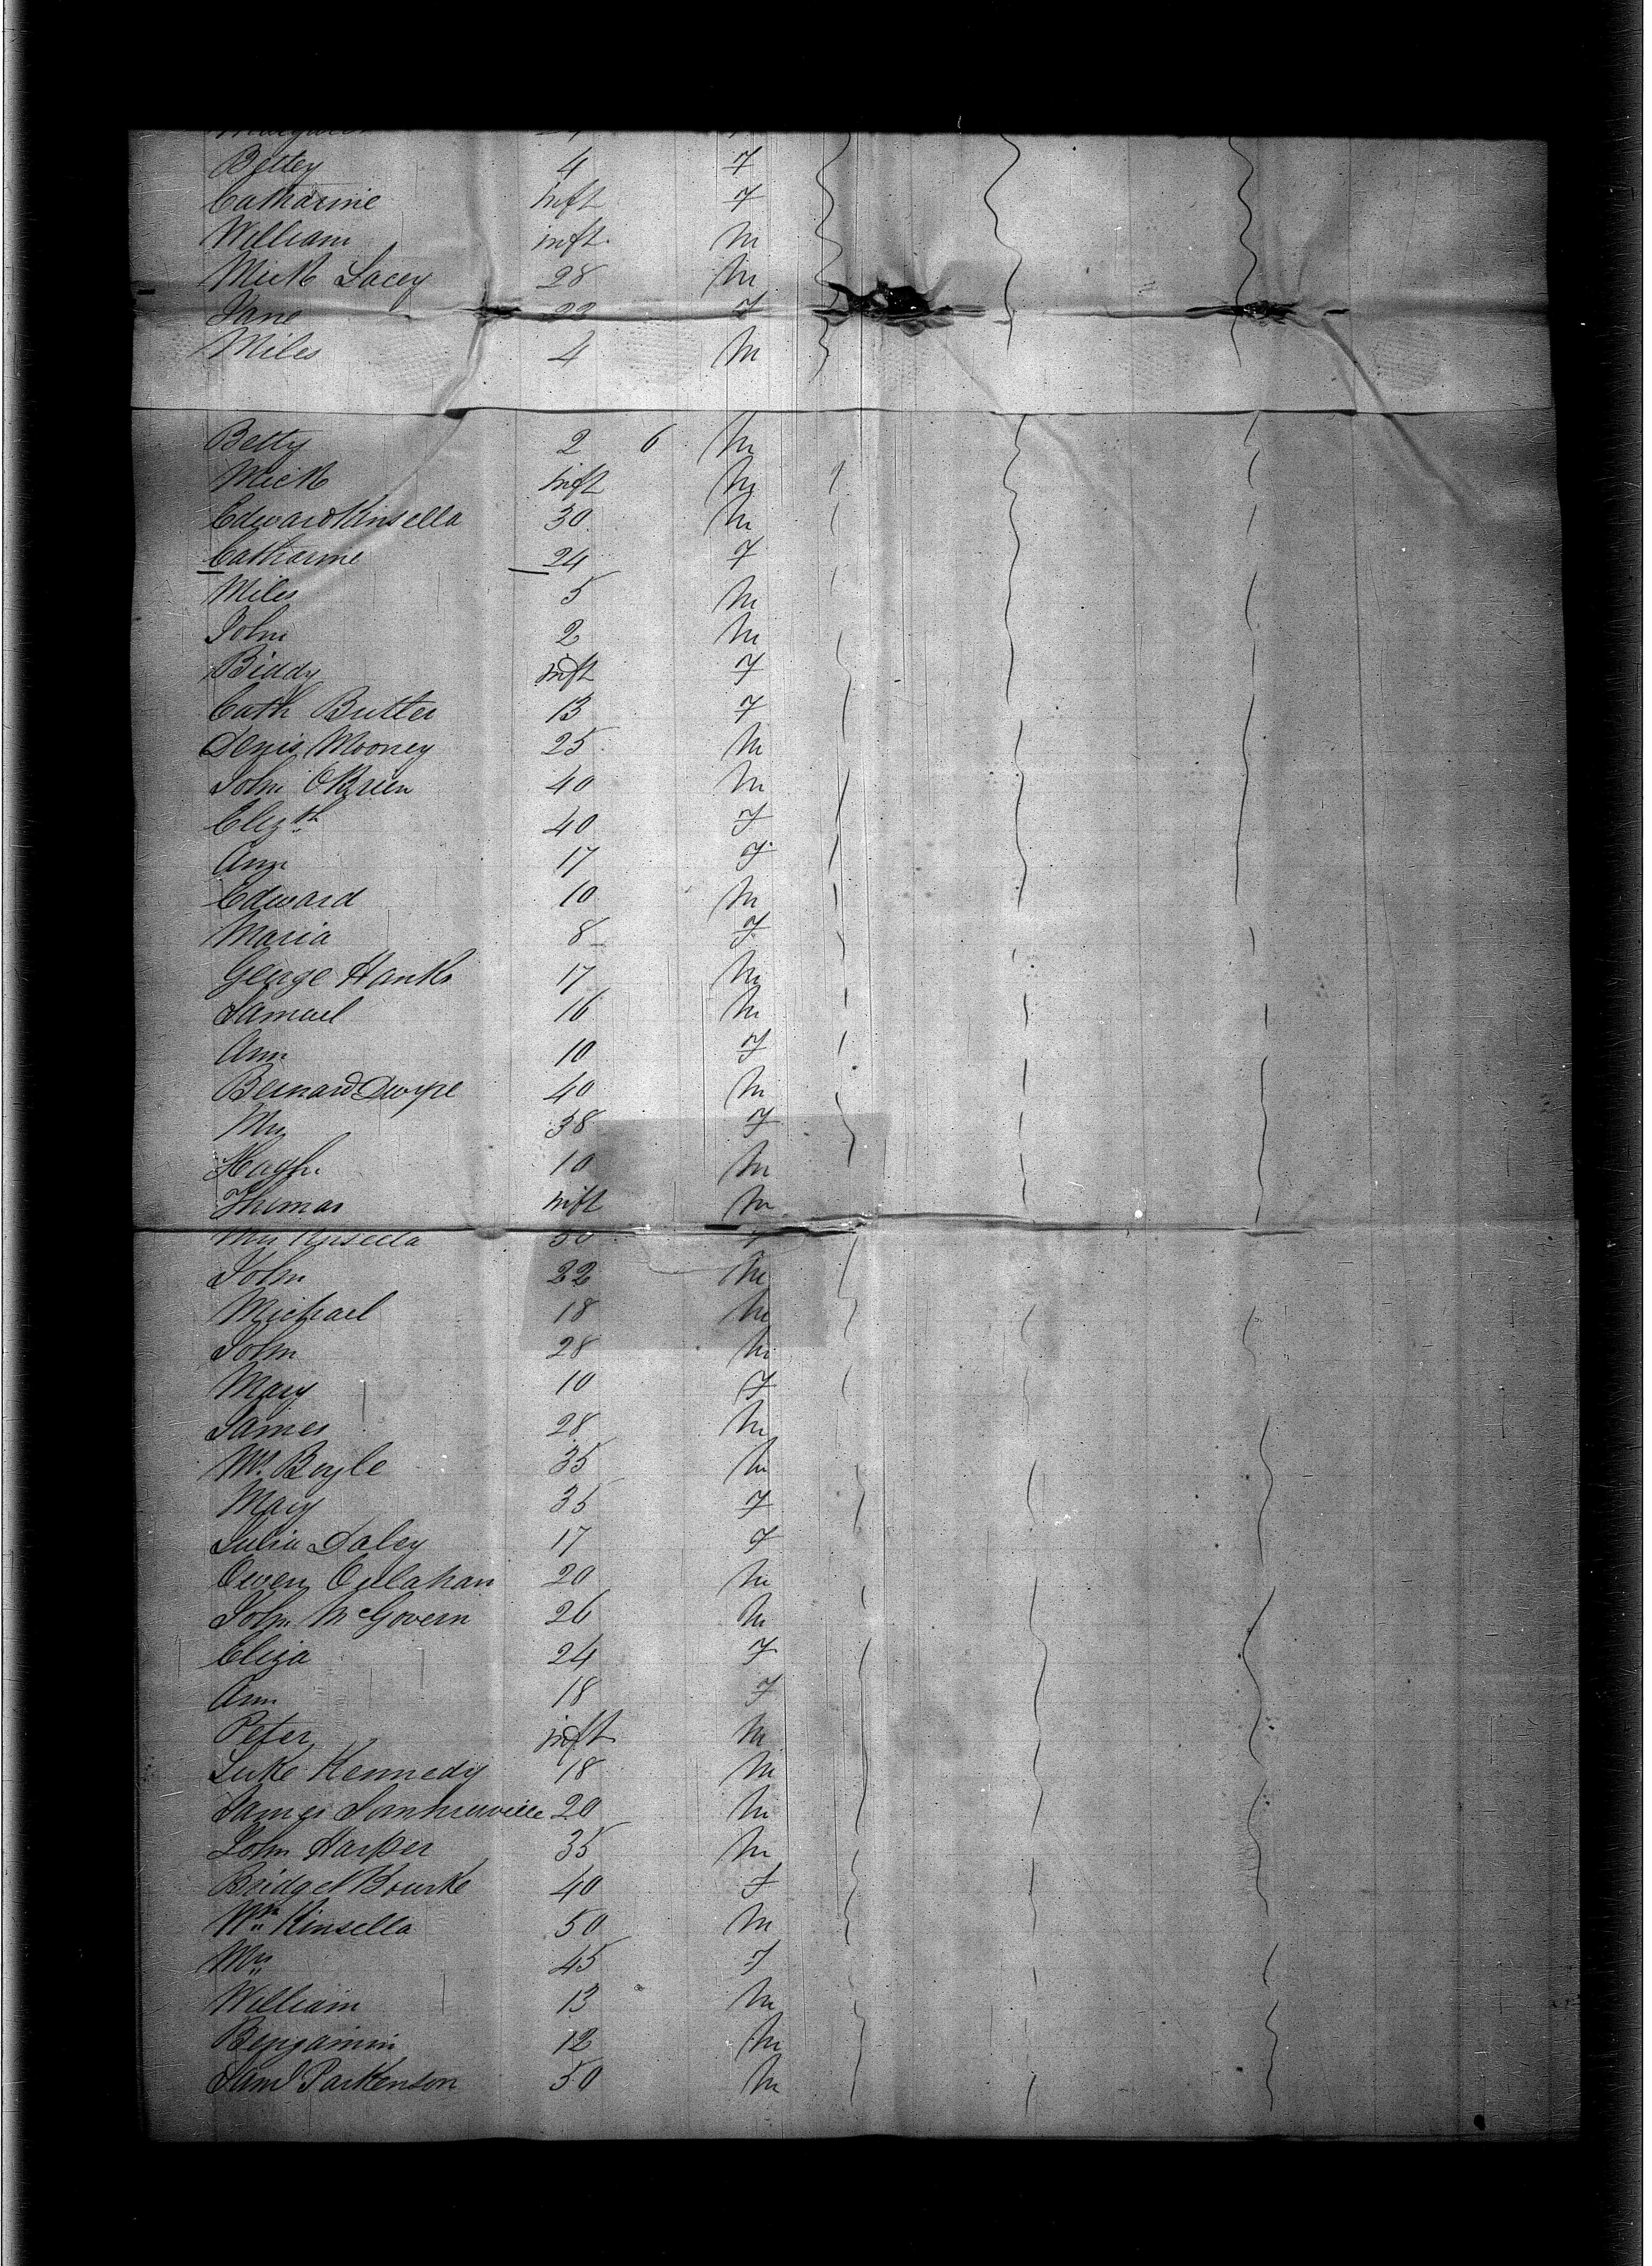 Margaret
Bettey 4 F
Catharine inft F
William inft. M
Mick Lacey 28 M
Jane 22 F
Miles 4 M
Betty 2 6 M
Mick inft M
Edward Kinsella 30 M
Catharine 24 F
Miles 5 M
John 2 M
Biddy inft F
Cath Butler 13 F
Denis Mooney 25 M
John OBrien 40 M
Elizth 40 F
Ann 17 F
Edward 10 M
Maria 8 F
George Hanks 17 M
Samuel 16 M
Ann 10 F
Bernard Dwyre 40 M
Mrs 38 F
Hugh 10 M
Thomas inft M
Mrs Kinsella 50 F
John 22 M
Michael 18 M
John 28 M
Mary 10 F
James 28 M
Mr. Boyle 35 M
Mary 35 F
Julia Daley 17 F
Owen Culahan 20 M
John McGovern 26 M
Eliza 24 F
Ann 18 F
Peter inft M
Luke Kennedy 18 M
James Sommerville 20 M
John Harper 35 M
Bridget Bourke 40 F
Wm Kinsella 50 M
Mrs 45 F
William 13 M
Benjamin 12 M
Saml Parkenson 50 M